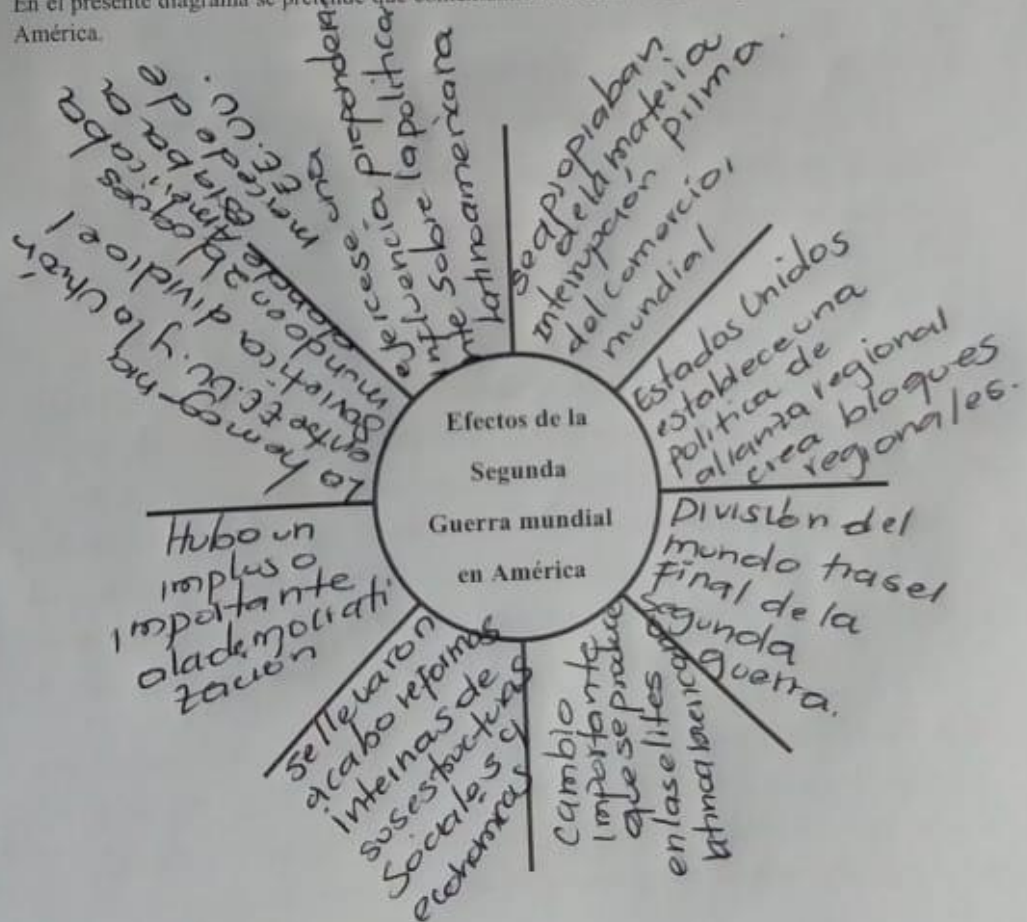 En el presente diagrama se pretende que
América.
Efectos de la
Segunda
Guerra mundial
en América
se apropiaban
de la materia
Interrupción prima.
del comercio,
mundial
Estados Unidos
establece una
política de
alianza regional
crea bloques
regionales.
División del
mundo tras el
Final de la
segunda
guerra.
cambio
importante
que se produce
en las elites
latinoamericanas
se llevaron
acabo reformas
internas de
sus estructuras
Sociales y
economicas
Hubo un
impluso
importante
a la democrati
zacion
La hemegnia
entre EE.UU. y la Unión
Sovietica dividio el
mundo en 2 bloques
donde América
estaba a
merced de
EE.UU.
ejercese una
influencia preponderan
te sobre la política
latinoamericana